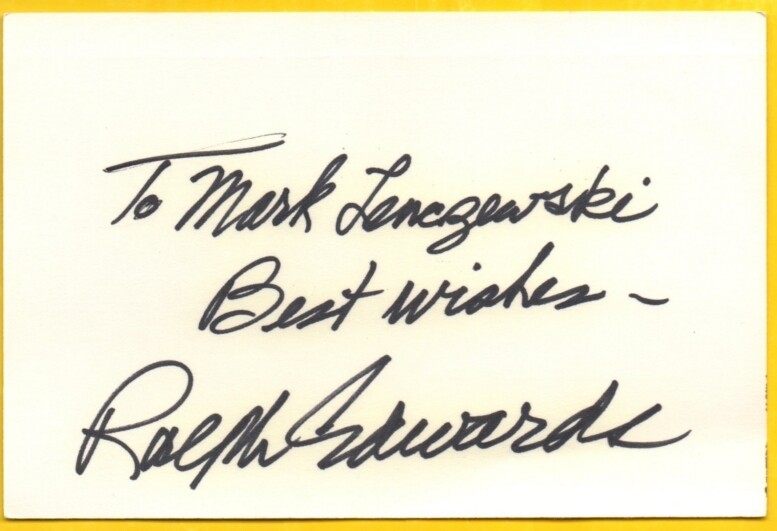 To Mark Lenczewski
Best wishes -
Ralph Edwards